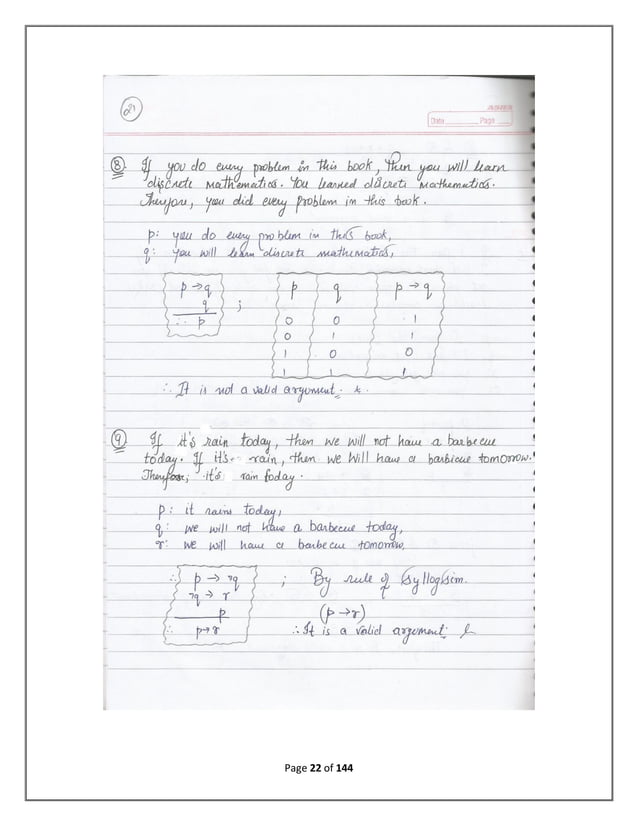 21
Date Page
⑧ If you do every problem in this book, then you will learn
discrete mathematics. You learned discrete mathematics.
Therefore, you did every problem in this book.
p: you do every problem in this book,
q: you will learn discrete mathematics,
p → q
q
∴ p
;
p q p → q
0 0 1
0 1 1
1 0 0
1 1 1
∴ It is not a valid argument.
⑨ If it's rain today, then we will not have a barbecue
today. If it's rain, then we will have a barbicue tomorrow.
Therefore, it's rain today.
p: it rains today,
q: we will not have a barbecue today,
r: we will have a barbecue tomorrow.
∴ p → ¬q
¬q → r
p
∴ p→r
; By rule of Syllogsim.
(p → r)
∴ It is a valid argument
Page 22 of 144